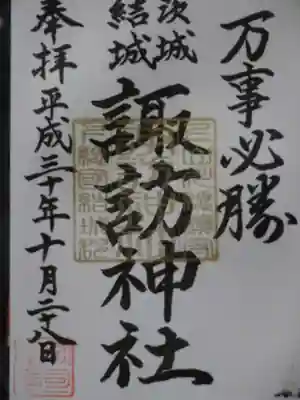 万事必勝
茨城
結城
諏訪神社
奉拝 平成三十年十月二十八日